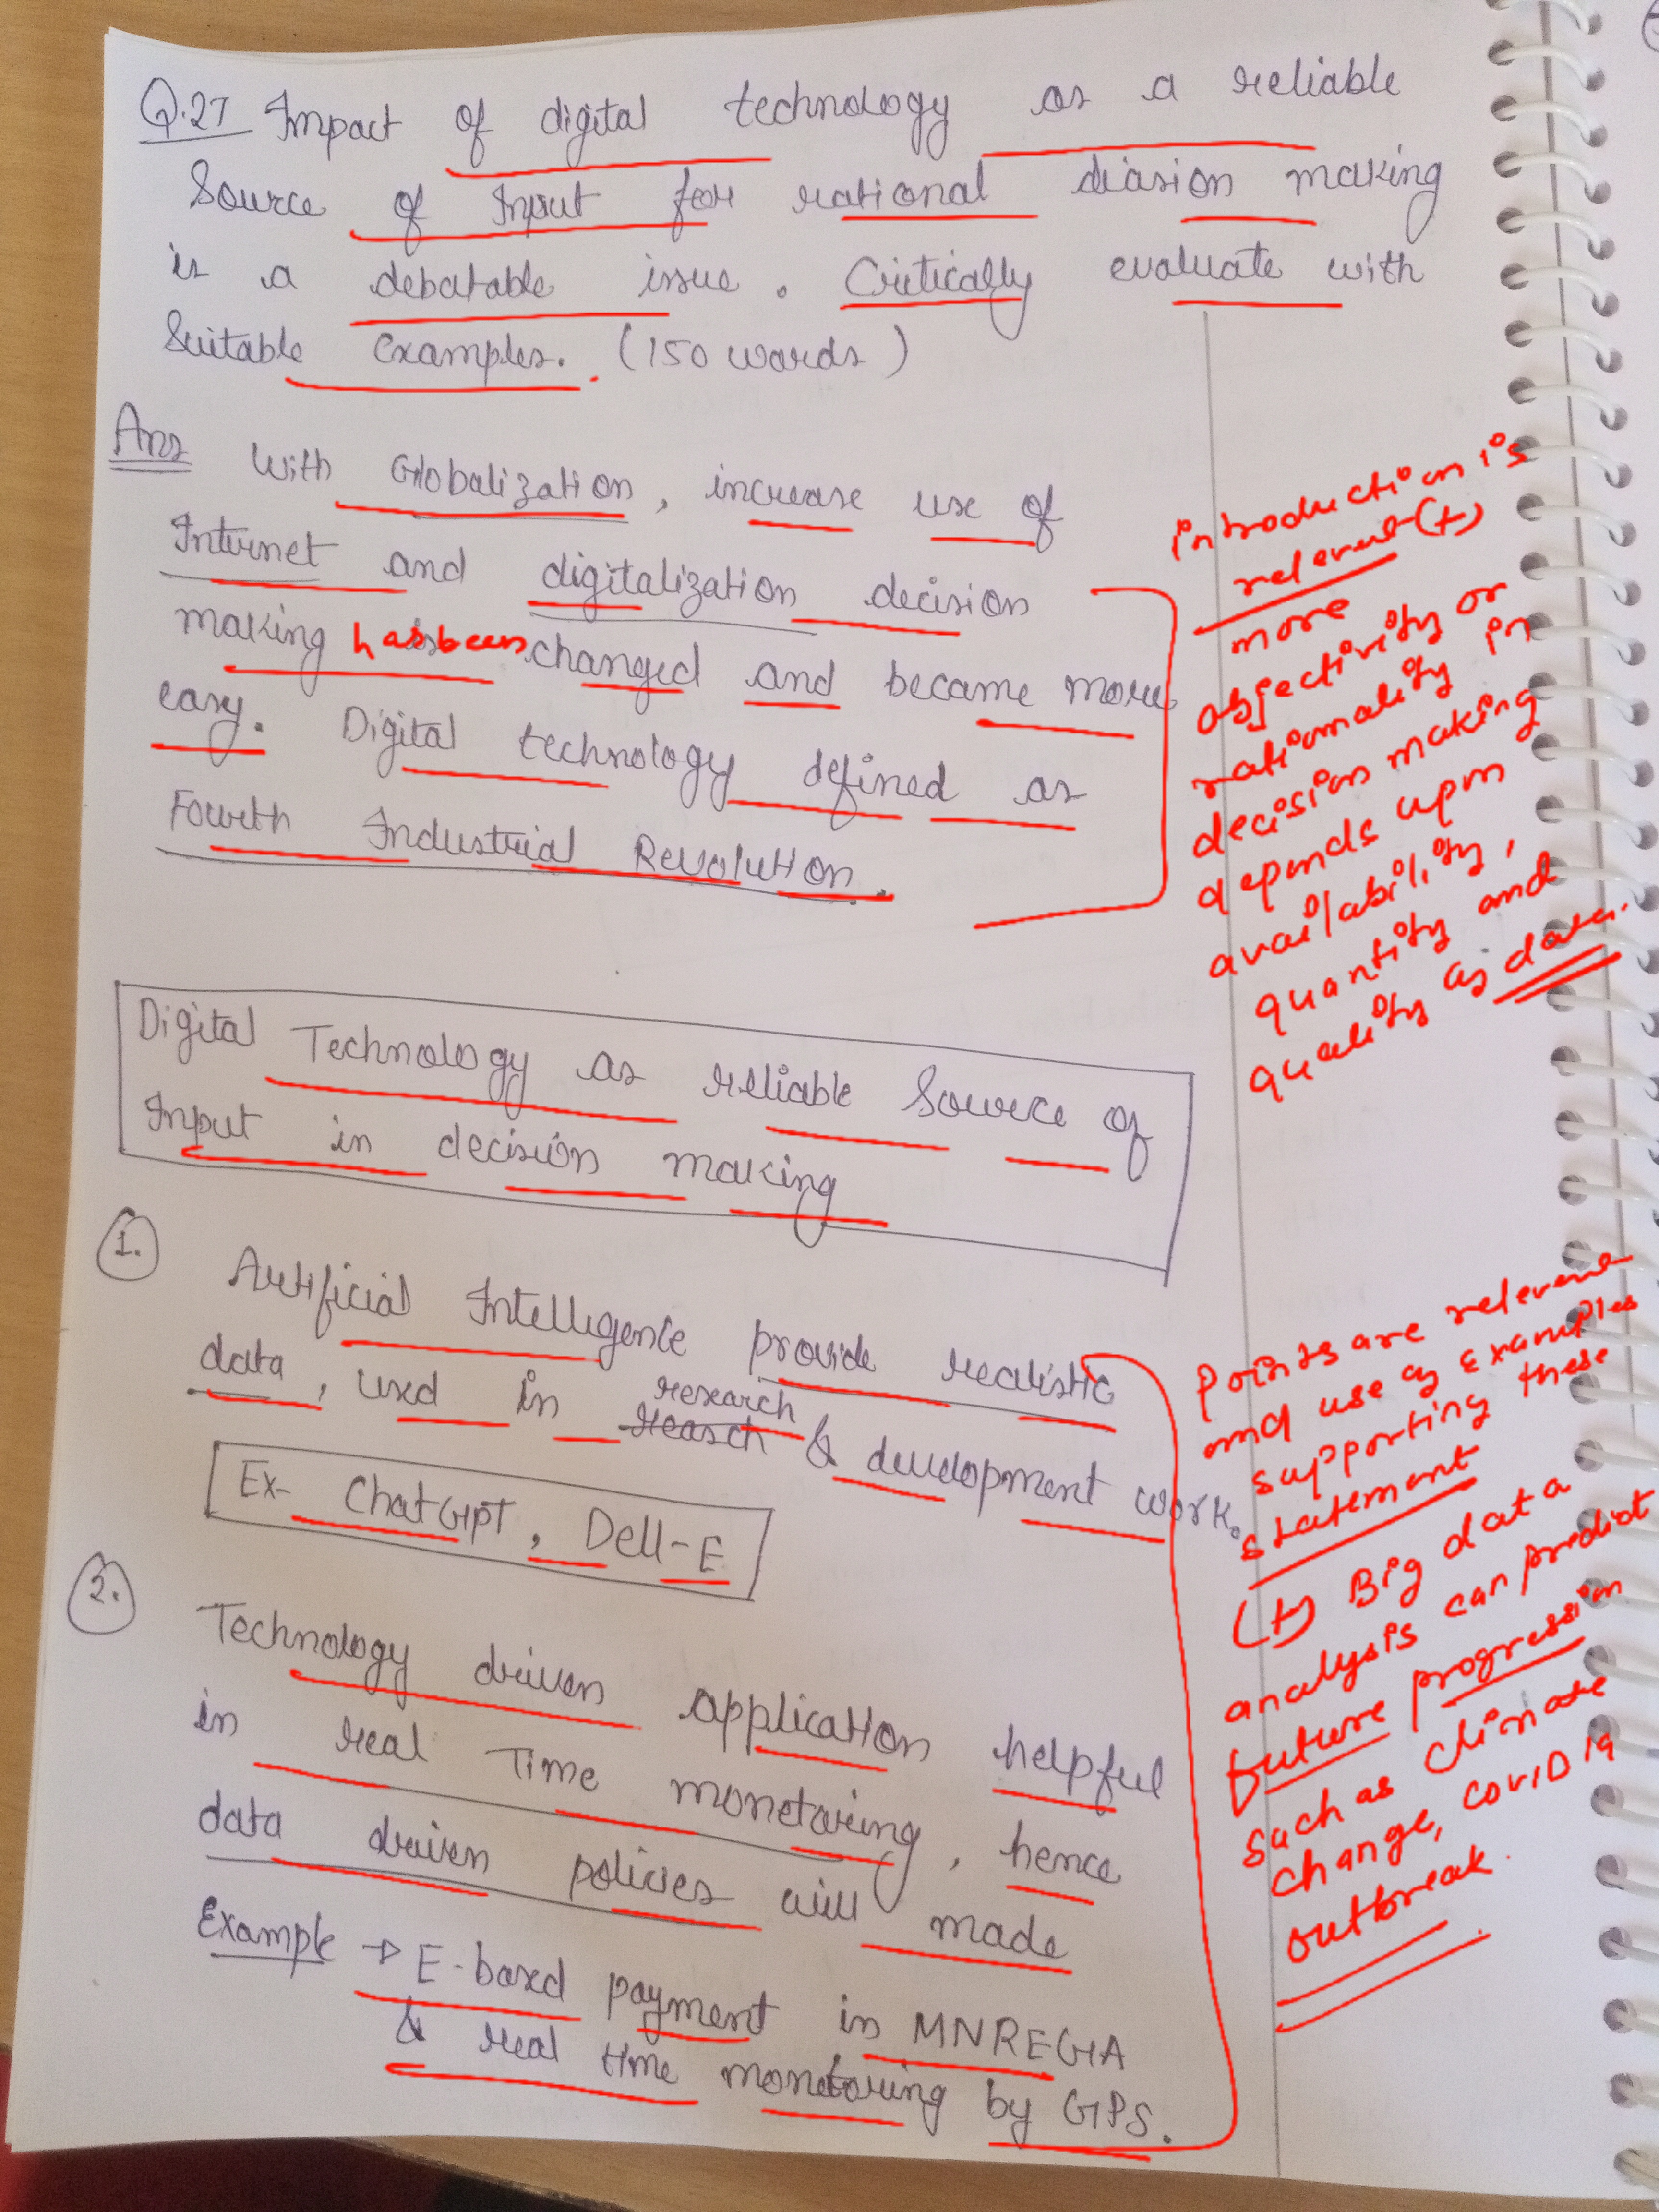 Q.27 Impact of digital technology as a reliable
Source of Input for rational diasion making
is a debatable issue. Critically evaluate with
Suitable examples. (150 words)
Ans With Globalization, increase use of
Internet and digitalization decision
making has been changed and became more
easy. Digital technology defined as
Fourth Industrial Revolution.
introduction is
relevent (+)
more
objectivity or
rationality in
decision making
depends upon
availability,
quantity and
quality of data.
Digital Technology as reliable Source of
Input in decision making
1. Artificial Intelligence provide realistic
data, used in research & development work.
Ex- ChatGPT, Dell-E
2. Technology driven application helpful
in real Time monetoring, hence
data driven policies will made
Example → E-based payment in MNREGA
& real time monetoring by GPS.
points are relevent
and use of examples
supporting these
statement
(+) Big data
analysis can predict
future progression
such as climate
change, COVID 19
outbreak.